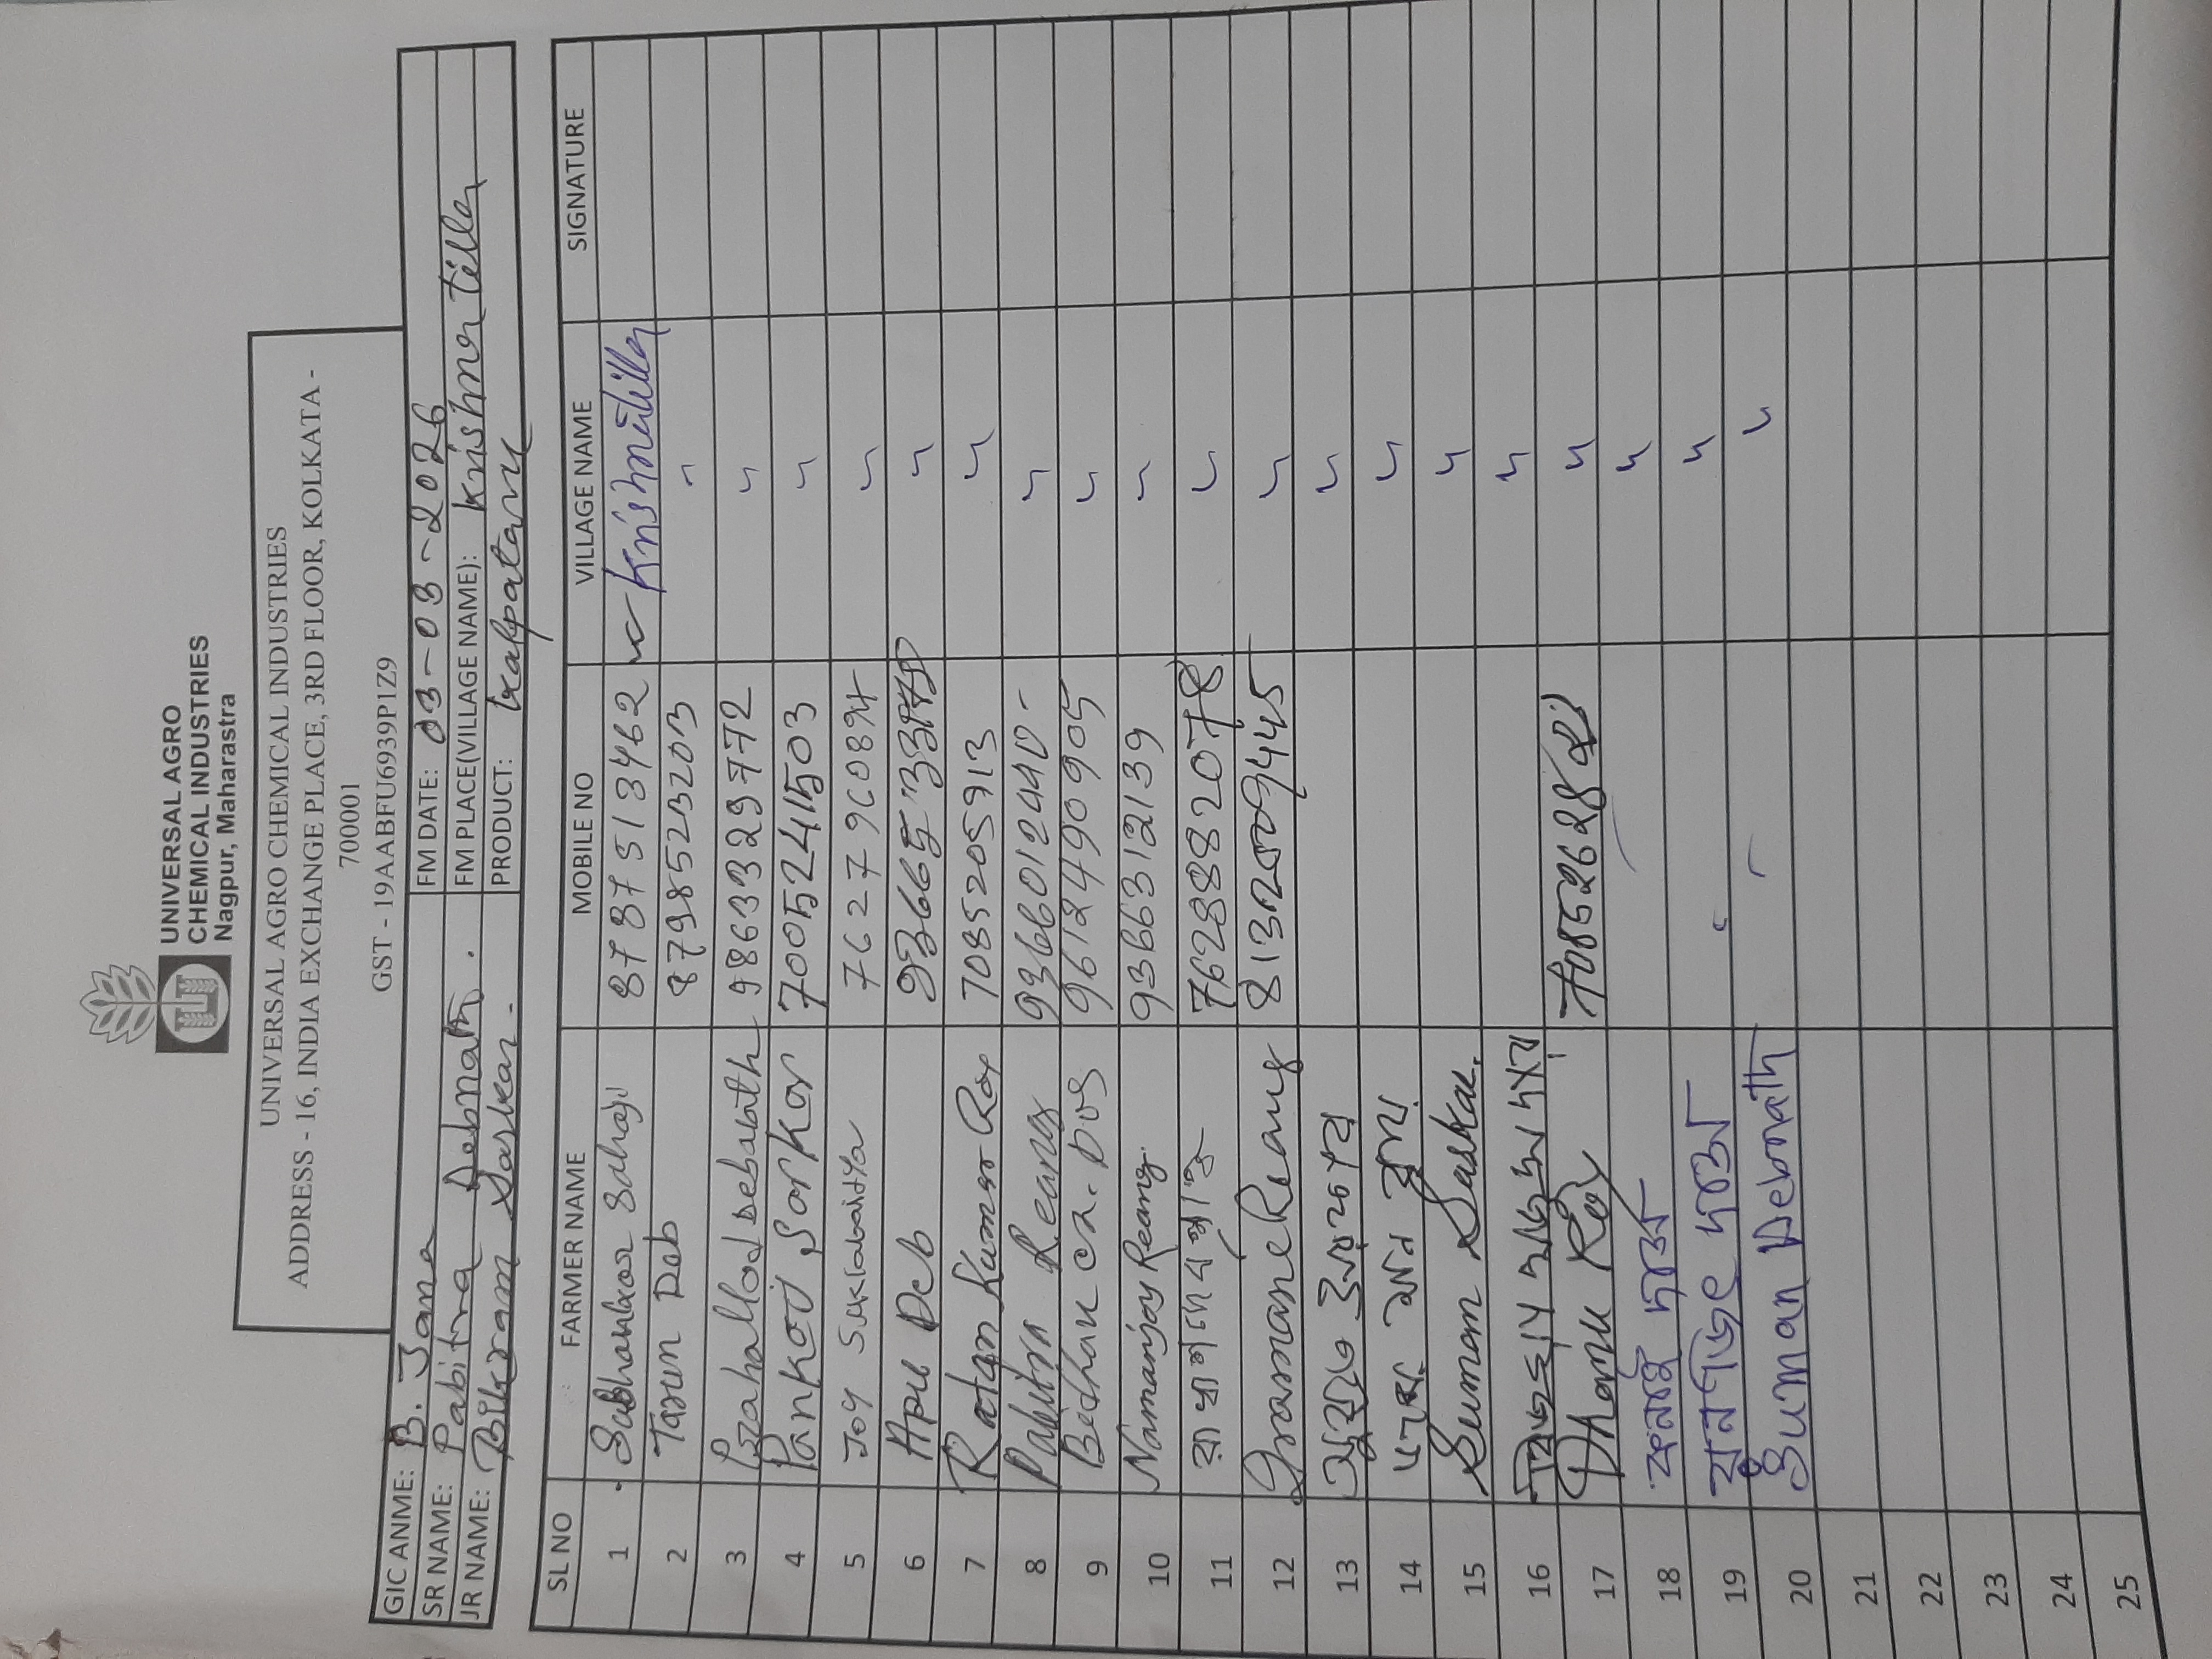 UNIVERSAL AGRO
CHEMICAL INDUSTRIES
Nagpur, Maharastra
UNIVERSAL AGRO CHEMICAL INDUSTRIES
ADDRESS - 16, INDIA EXCHANGE PLACE, 3RD FLOOR, KOLKATA -
700001
GST - 19AABFU6939P1Z9
GIC ANME: B. Jana FM DATE: 03-03-2026
SR NAME: Pabitra Debnath. FM PLACE(VILLAGE NAME): Krishna tilla
JR NAME: Bikram Sarkar. PRODUCT: Kalpataru
SL NO FARMER NAME MOBILE NO VILLAGE NAME SIGNATURE
1 Subhankar 8787513462 Krishnatilla
2 Tarun Deb 8798523203 "
3 Prahallod Debnath 9863329772 "
4 Pankoj Sarkar 7005241503 "
5 Joy "
6 Apu Deb "
7 Ratan Kumar Roy 7085205913 "
8 Pabitra Reang "
9 Bidhan Ch. Das 9612490905 "
10 Namanjoy Reang. 9366312139 "
11 7628882078 "
12 Reang "
13 "
14 "
15 Suman Sarkar. "
16 "
17 Dhonu Roy "
18 "
19 "
20 Suman Debnath "
21
22
23
24
25